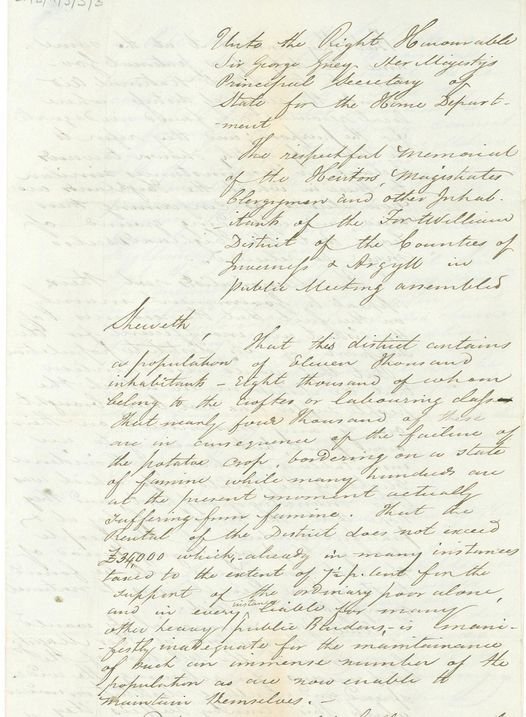 Unto the Right Honourable
Sir George Grey Her Majestys
Principal Secretary of
State for the Home Depart-
-ment
The respectful Memorial
of the Heritors, Magistrates
Clergymen and other Inhab-
-itants of the Fort William
District of the Counties of
Inverness & Argyll in
Public Meeting assembled
Sheweth,
That this district contains
a population of Eleven thousand
inhabitants – Eight thousand of whom
belong to the crofter or labouring class –
That nearly four thousand of these
are in consequence of the failure of
the potatoe crop, bordering on a state
of famine while many hundreds are
at the present moment actually
suffering from famine. That the
Rental of the District does not exceed
which, already in many instances
taxed to the extent of p. cent for the
support of the ordinary poor alone,
and in every instance liable for many
other heavy public Burdens, is mani-
festly inadequate for the maintainance
of such an immense number of the
population as are now unable to
maintain themselves. –